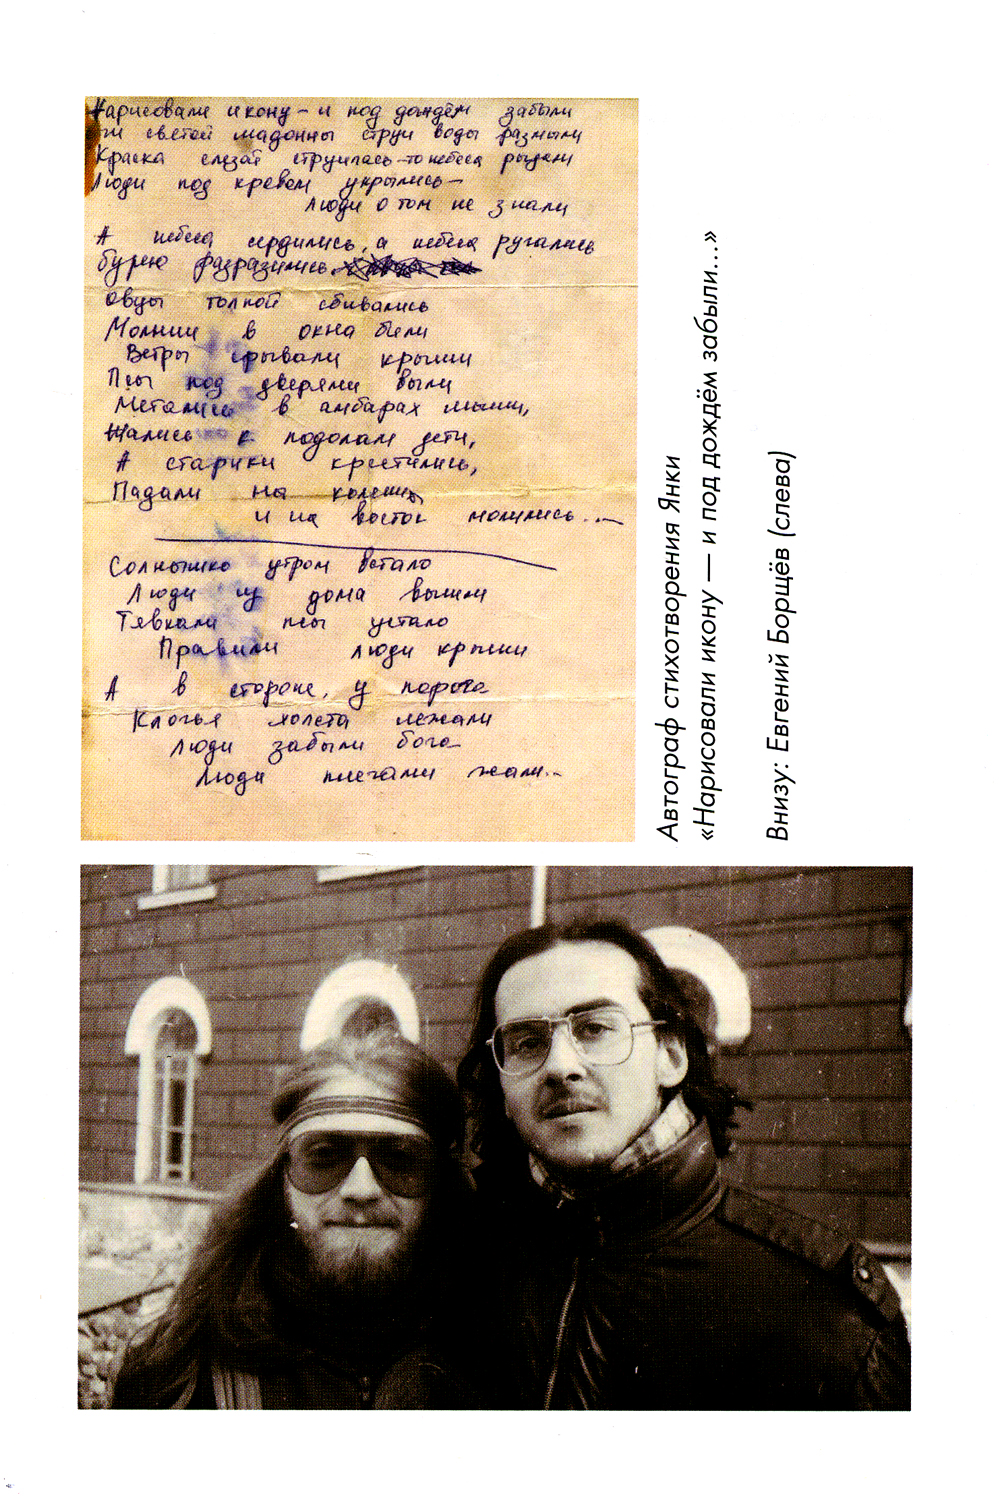 Нарисовали икону – и под дождём забыли
Очи светой мадонны струи воды размыли
Краска слезой струилась – то небеса рыдали
Люди под кровом укрылись –
Люди о том не знали
А небеса сердились, а небеса ругались
Бурею разразились
Овцы толпой сбивались
Молнии в окна били
Ветры срывали крыши
Псы под дверями выли
Метались в амбарах мыши,
Жались к подолам дети,
А старики крестились,
Падали на колени
и на восток молились...
Солнышко утром встало
Люди из дома вышли
Тявкали псы устало
Правили люди крыши
А в стороне, у порога
Клочья холста лежали
Люди забыли бога
Люди плечами жали...
Автограф стихотворения Янки
«Нарисовали икону — и под дождём забыли...»
Внизу: Евгений Борщёв (слева)